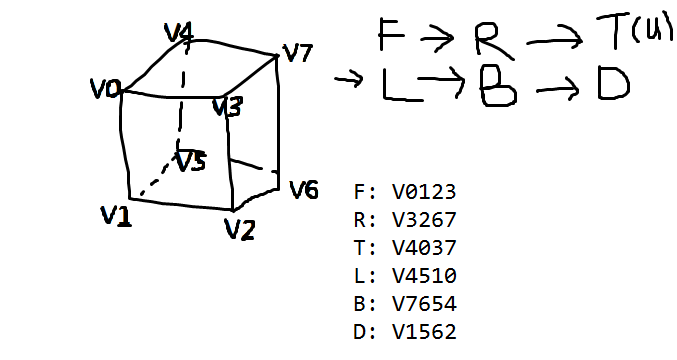 V4
V7
V0
V3
V5
V6
V1
V2
F → R → T(u)
→ L → B → D
F: V0123
R: V3267
T: V4037
L: V4510
B: V7654
D: V1562